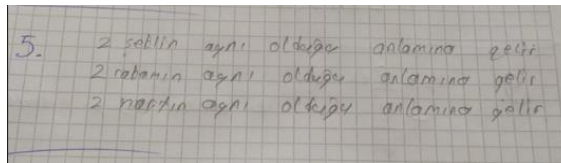 5. 2 şeklin aynı olduğu anlamına gelir
2 rakamın aynı olduğu anlamına gelir
2 harfin aynı olduğu anlamına gelir